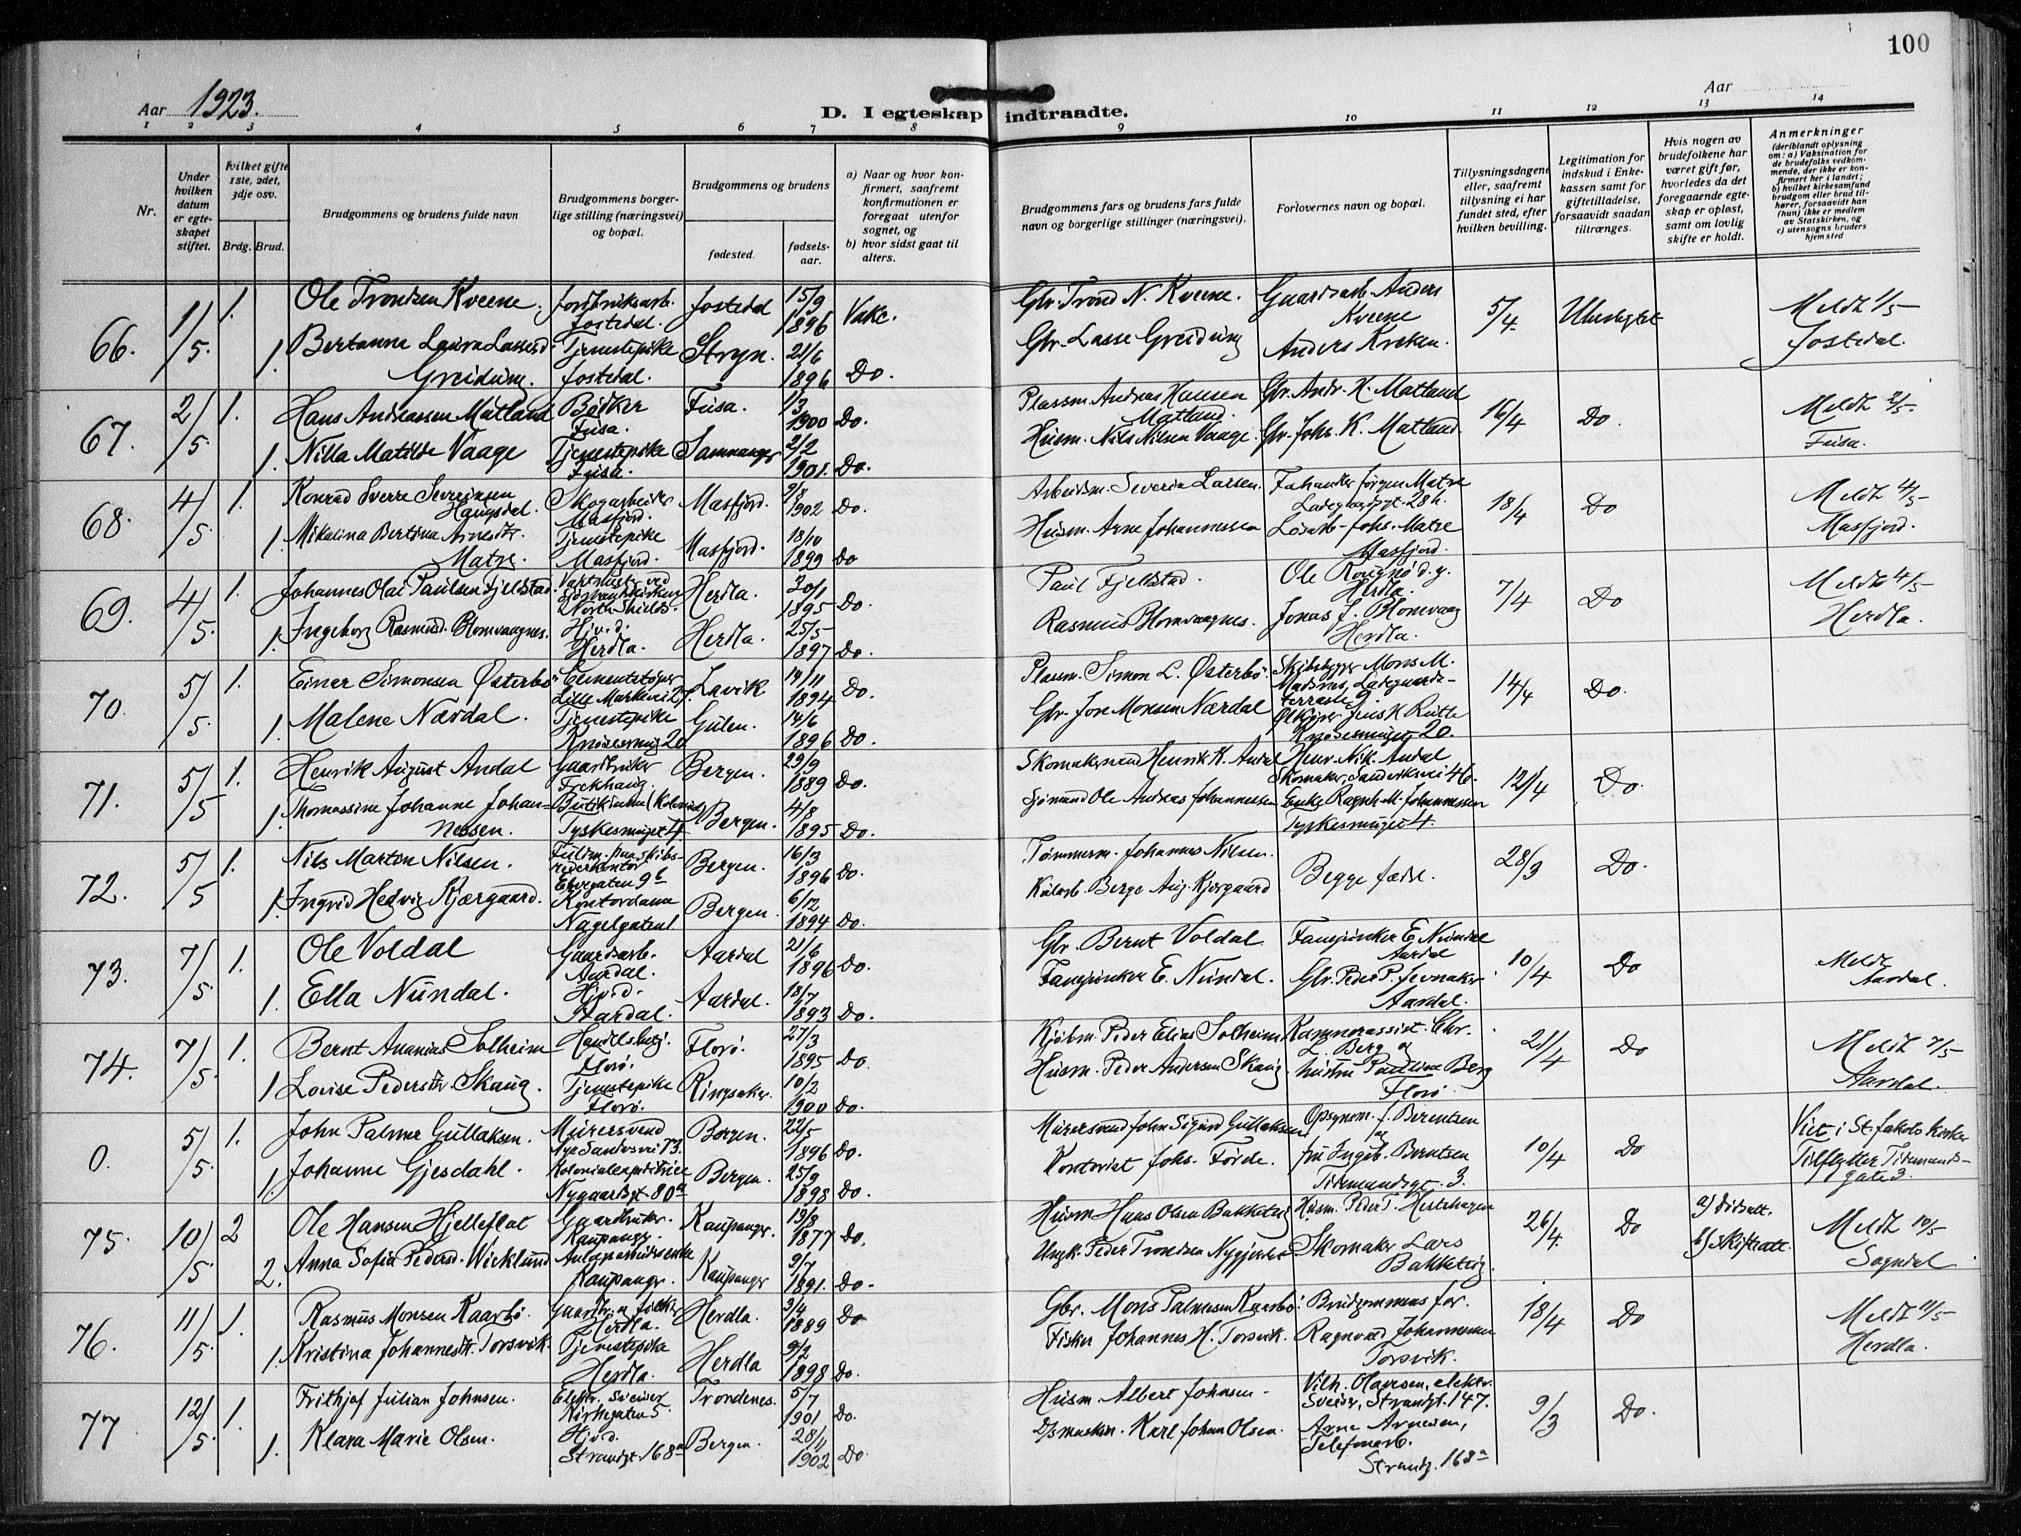 100
Aar 1923.
D. I egteskap indtraadte.
Aar
1 2 3 4 5 6 7 8 9 10 11 12 13 14
Nr.
Under hvilken datum er egteskapet stiftet.
hvilket gifte 1ste, 2det, 3dje osv.
Brdg. Brud.
Brudgommens og brudens fulde navn
Brudgommens borgerlige stilling (næringsvei) og bopæl.
Brudgommens og brudens
fødested.
fødselsaar.
a) Naar og hvor konfirmert, saafremt konfirmationen er foregaat utenfor sognet, og
b) hvor sidst gaat til alters.
Brudgommens fars og brudens fars fulde navn og borgerlige stillinger (næringsvei).
Forlovernes navn og bopæl.
Tillysningsdagene eller, saafremt tillysning ei har fundet sted, efter hvilken bevilling.
Legitimation for indskud i Enkekassen samt for giftetilladelse, forsaavidt saadan tiltrænges.
Hvis nogen av brudefolkene har været gift før, hvorledes da det foregaaende egteskap er opløst, samt om lovlig skifte er holdt.
Anmerkninger
(deriblandt oplysning om: a) Vaksination for de brudefolks vedkommende, der ikke er konfirmert her i landet; b) hvilket kirkesamfund brudgom eller brud tilhører, forsaavidt han (hun) ikke er medlem av Statskirken, og c) utensogns bruders hjemsted
66. 1/5. 1. Ole Trondsen Kveene. Jostedal. Jostedal 15/9 1896 Vakc. Gbr. Trond N. Kveene. Gaardsarb. Anders Kveene 5/4. Meldt 1/5 Jostedal.
1. Bertanna Laura Lassesd. Greidung. Tjenestepike Jostedal. Stryn. 21/6 1896 Do. Gbr. Lasse Greidung Anders Kveken.
67. 2/5. 1. Hans Andreassen Matland Bødker Fusa. Fusa. 1/3 1900 Do. Plassm. Andreas Hansen Matland. Gbr. Andr. H. Matland 16/4 Do. Meldt 2/5. Fusa.
1. Nilla Matilde Vaage Tjenestepike Fusa. Samnanger 2/2 1901. Do. Husm. Nils Nilsen Vaage. Gbr. Johs. K. Matland.
68. 4/5. 1. Konrad Sverre Severinsen Haugsdal. Skogarbeider Masfjord. Masfjord. 9/8 1902 Do. Arbeidsm. Severin Larsen. Jørgen Matre Ladegaardsgt. 28 h. 18/4 Do Meldt 4/5 Masfjord.
1. Mikalina Bertina Arnesdtr. Matre. Tjenestepike Masfjord. Masfjord. 18/10 1899 Do Husm. Arne Johannessen Johs. Matre Masfjord.
69. 4/5. 1. Johannes Olai Paulsen Fjeldstad. North Shields. Herdla. 30/1 1895 Do. Paul Fjellstad. Herdla. 7/4 Do Meldt 4/5 Herdla.
1. Ingeborg Rasmusd. Blomvaagnes. Hj.v.d. Herdla. Herdla. 25/5 1897 Do. Rasmus Blomvaagnes. Jonas J. Blomvaag Herdla.
70. 5/5. 1. Einar Simonsen Østerbø Cementstøper Lille Markevei 27. Lavik 19/11 1894 Do. Plassm. Simon L. Østerbø. Skibsbygger Mons M. Madsnes, Ladegaardsterrasse 9. 14/4 Do.
1. Malene Nærdal. Tjenestepike Knøsesmug 20 Gulen. 14/6 1896 Do. Gbr. Jon Monsen Nærdal Jens H Rutle Knøsesmuget 20.
71. 5/5 1. Henrik August Andal Gaardbruker Frekhaug Bergen. 29/9 1889 Do. Skomakersvend Henrik K. Andal Henr. Nik. Andal Skomaker, Sandviksvei 46. 12/4 Do.
1. Thomassine Johanne Johannessen. Tyskesmuget 4 Bergen. 4/8 1895 Do. Sjømand Ole Andreas Johannessen Enke Ragnh. M. Johannessen Tyskesmuget 4.
72. 5/5 1. Nils Marton Nilsen. Fuldm. paa skibsrederkontor 9 b Bergen. 16/3 1896 Do. Tømmerm. Johannes Nilsen. Begge fædre. 28/3 Do.
1. Ingrid Hedvig Kjærgaard. Kontordame Nagelgaten 1 Bergen. 6/12 1894 Do. Berge Aug. Kjærgaard
73. 7/5. 1. Ole Voldal Gaardsarb. Aardal. Aardal 21/6 1896 Do. Gbr. Bernt Voldal. Fanejunker E. Nundal Aardal 10/4 Do Meldt Aardal.
1. Ella Nundal. Hj.v.d. Aardal. Aardal. 18/7 1893 Do. Fanejunker E. Nundal. Gbr. Peder P. Jevnaker Aardal.
74. 7/5. 1. Bernt Ananias Solheim Handelsbetj. Florø. Florø. 27/3 1895 Do. Kjøbm. Peder Elias Solheim Kæmnerassist. Chr. L. Berg og 21/4 Do Meldt 7/5 Aardal.
1 Lovise Pedersdtr. Skaug. Tjenestepike Florø. Ringsaker. 10/2 1900 Do. Husm. Peder Andersen Skaug. hustru Pauline Berg Florø
0. 5/5. 1. John Palmer Gullaksen. Murersvend Nye Sandviksvei 73. Bergen. 22/5 1896 Do. Murersvend John Sigurd Gullaksen Opsynsm. J. Berentsen og 10/4 Do Viet i St. Jakobs kirke Tilflytter Tidemandsgate 3.
1. Johanne Gjesdahl. Kolonialexpeditrice Nygaardsgt 80 a Bergen. 25/9 1898 Do. Kontorist Johs. Førde. fru Ingeb. Berentsen Tidemandsgt. 3.
75. 10/5. 2 Ole Hansen Hjelleflat Gaardbruker. Kaupanger. Kaupanger. 13/8 1877 Do. Husm Hans Olsen Bakketeig Husm. Peder T. Hestehagen 26/4. Do a) b) Skifteatt. Meldt 10/5 Sogndal
2. Anna Sofia Pedersd. Wicklund Kaupanger. Kaupanger 9/7 1891. Do. Ungk. Peder Trondsen Skomaker Lars Bakketeig.
76. 11/5. 1. Rasmus Monsen Kaarbø. Gaardbr. og fisker Herdla. Herdla. 3/4 1889 Do Gbr. Mons Palmesen Kaarbø. Brudgommens far. 18/4 Do Meldt 11/5 Herdla.
1. Kristina Johannesdtr. Torsvik. Tjenestepike Herdla. Herdla 9/2 1898 Do. Fisker Johannes H. Torsvik. Ragnvald Johannessen Torsvik.
77. 12/5. 1. Frithjof Julian Johnsen. Elektr. Sveiser Kirkegaten 5. Trondenes. 5/7 1901 Do. Husm Albert Johnsen. Vilh. Olavesen, elektr. Sveiser, Strandgt. 147. 9/3 Do.
1. Klara Marie Olsen. Hj.v.d. Strandgt. 168 a Bergen. 28/11 1902 Do. D/s maskin. Karl Johan Olsen. Arne Arnesen, Telefonarb. Strandg. 168 a